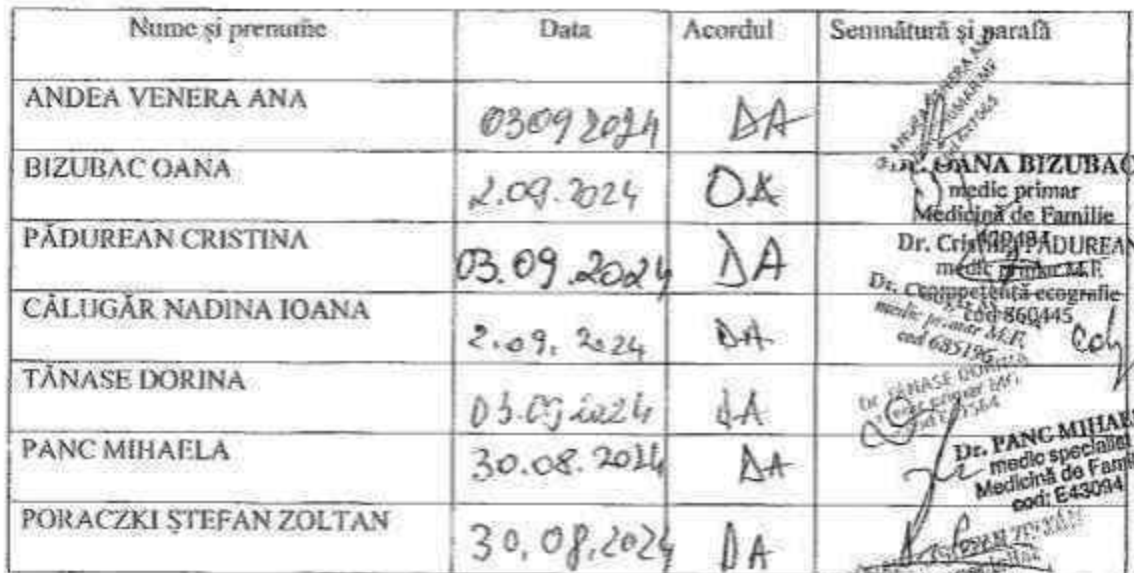 Nume și prenume Data Acordul Semnătură și parafă
ANDEA VENERA ANA 03092024 DA
BIZUBAC OANA 2.09.2024 DA
DR. OANA BIZUBAC
medic primar
Medicină de Familie
PĂDUREAN CRISTINA 03.09.2024 DA
Dr. Cristina PĂDUREAN
medic primar M.F.
Competență ecografie
cod 860445
CĂLUGĂR NADINA IOANA 2.09.2024 DA
medic primar M.F.
cod 685196
TĂNASE DORINA 03.09.2024 DA
Dr. TĂNASE DORINA
PANC MIHAELA 30.08.2024 DA
Dr. PANC MIHAE
medic specialist
Medicină de Fami
cod: E43094
PORACZKI ȘTEFAN ZOLTAN 30.08.2024 DA